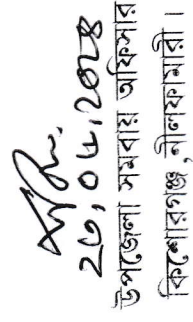 ২৬,০৮,২০২৪
উপজেলা সমবায় অফিসার
কিশোরগঞ্জ, নীলফামারী।